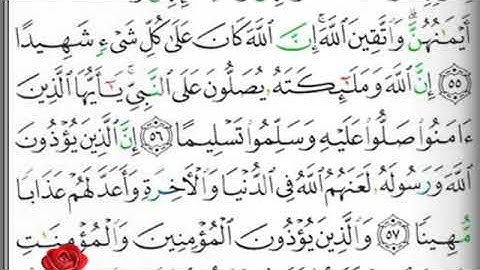 أَيْمَـٰنُهُنَّ ۗ وَٱتَّقِينَ ٱللَّهَ ۚ إِنَّ ٱللَّهَ كَانَ عَلَىٰ كُلِّ شَىْءٍ شَهِيدًا
﴿٥٥﴾ إِنَّ ٱللَّهَ وَمَلَـٰٓئِكَتَهُۥ يُصَلُّونَ عَلَى ٱلنَّبِىِّ ۚ يَـٰٓأَيُّهَا ٱلَّذِينَ
ءَامَنُوا۟ صَلُّوا۟ عَلَيْهِ وَسَلِّمُوا۟ تَسْلِيمًا ﴿٥٦﴾ إِنَّ ٱلَّذِينَ يُؤْذُونَ
ٱللَّهَ وَرَسُولَهُۥ لَعَنَهُمُ ٱللَّهُ فِى ٱلدُّنْيَا وَٱلْـَٔاخِرَةِ وَأَعَدَّ لَهُمْ عَذَابًا
مُّهِينًا ﴿٥٧﴾ وَٱلَّذِينَ يُؤْذُونَ ٱلْمُؤْمِنِينَ وَٱلْمُؤْمِنَـٰتِ